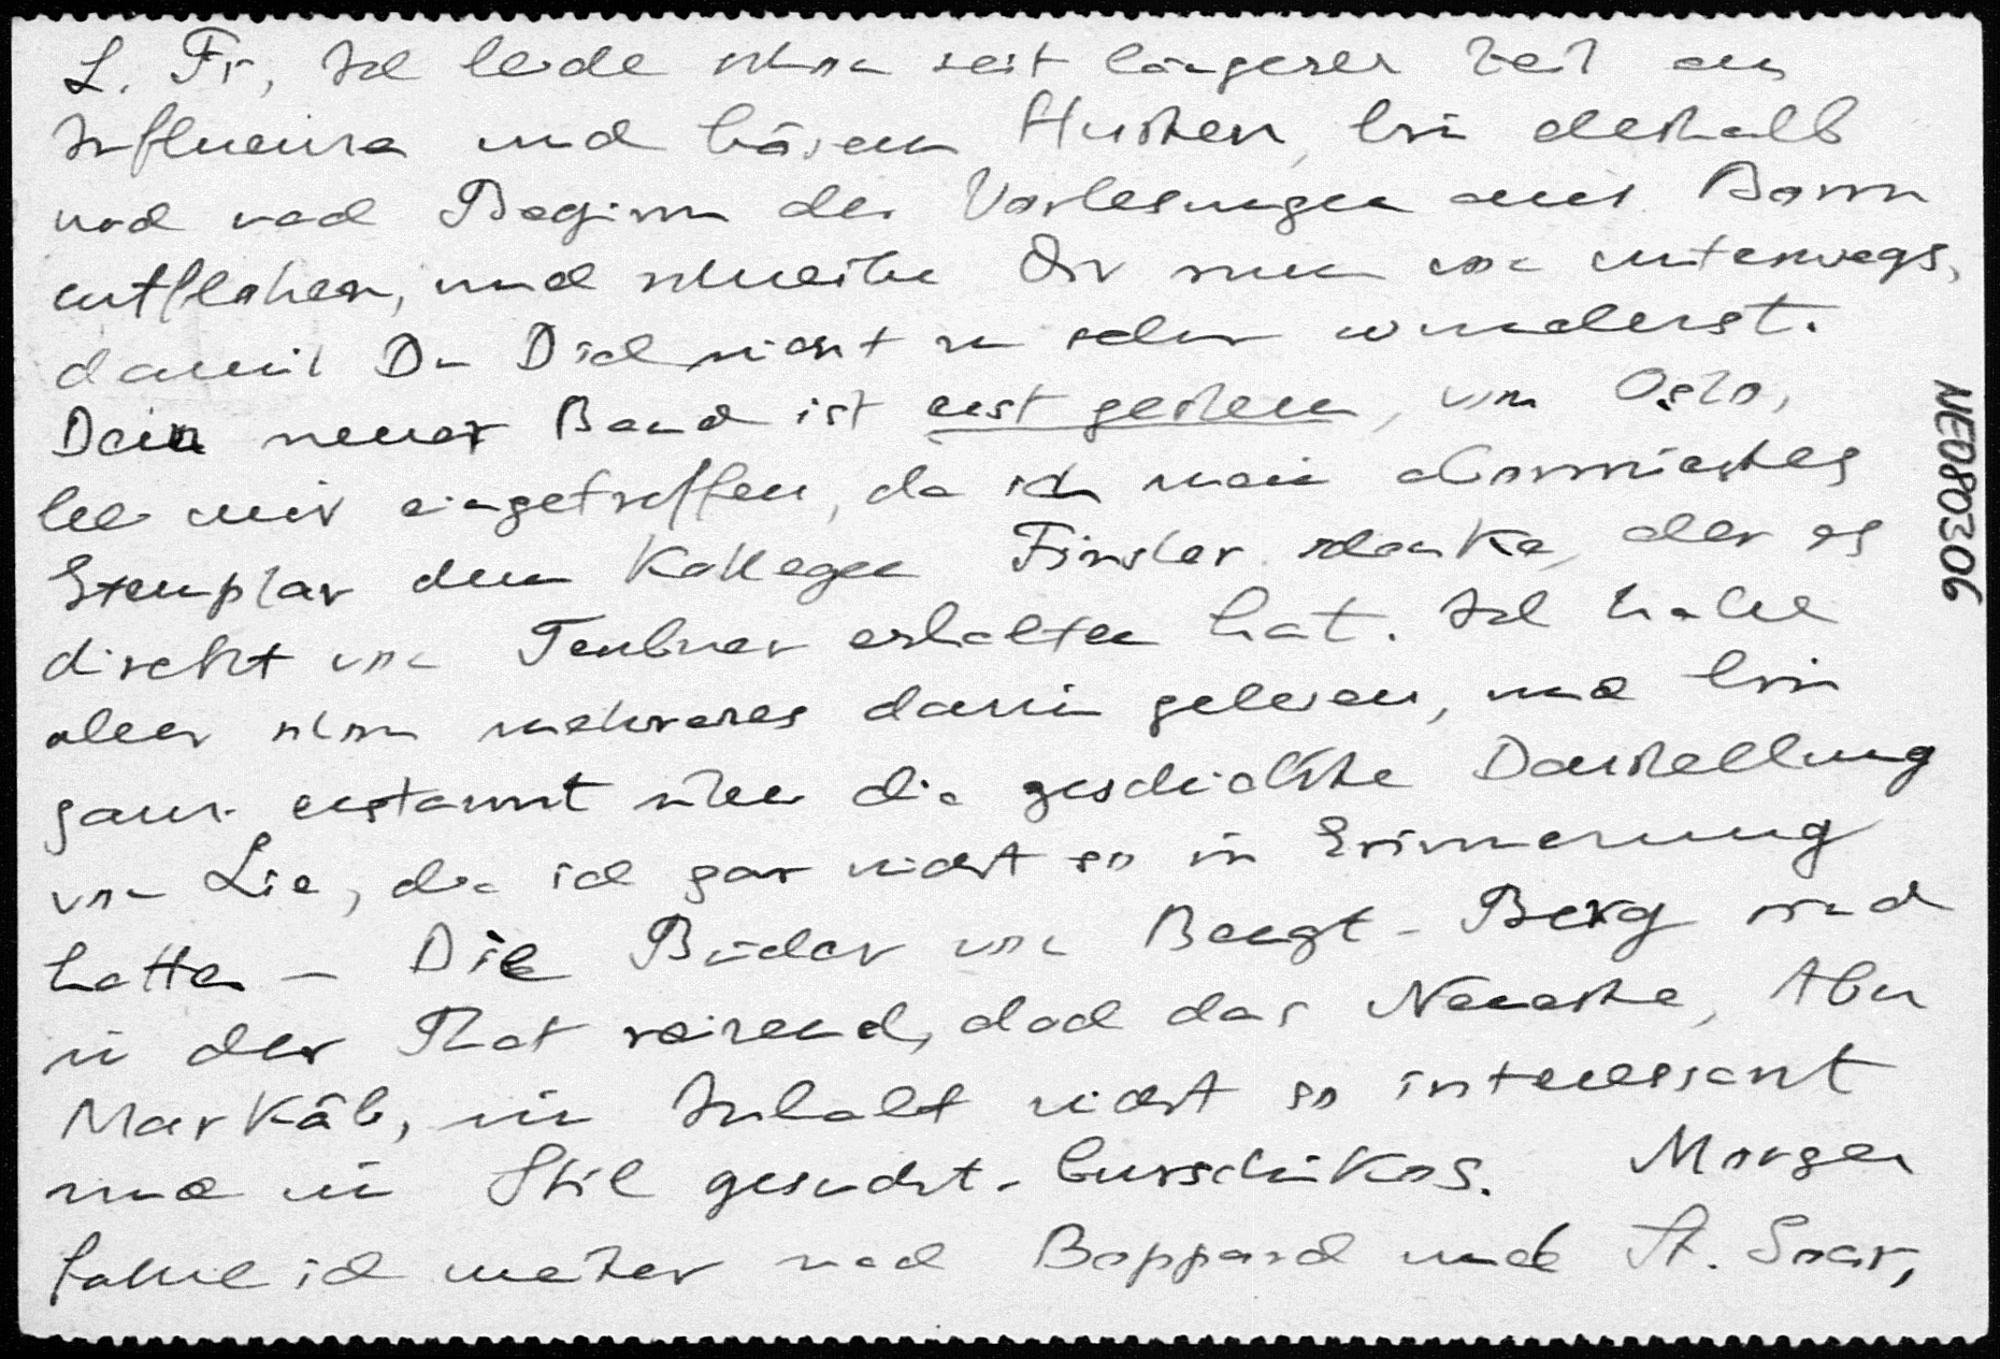 L. Fr, Ich leide schon seit längerer Zeit an
Influenza und bösem Husten, bin deshalb
noch nach Beginn der Vorlesungen aus Bonn
entflohen, und schreibe Dir nun von unterwegs,
damit Du Dich nicht zu sehr wunderst.
Dein neuer Band ist erst gestern, von Oslo,
bei mir eingetroffen, da ich mein abonniertes
Exemplar dem Kollegen Finsler schenkte, der es
direkt von Teubner erhalten hat. Ich habe
aber schon mehreres darin gelesen, und bin
ganz erstaunt über die geschickte Darstellung
von Lie, die ich gar nicht so in Erinnerung
hatte – Die Bücher von Bengt-Berg sind
in der That reizend, doch das Neueste, Abu
Markûb, im Inhalt nicht so interessant
und im Stil gesucht-burschikos. Morgen
fahre ich weiter nach Boppard und St. Goar,
NE080306